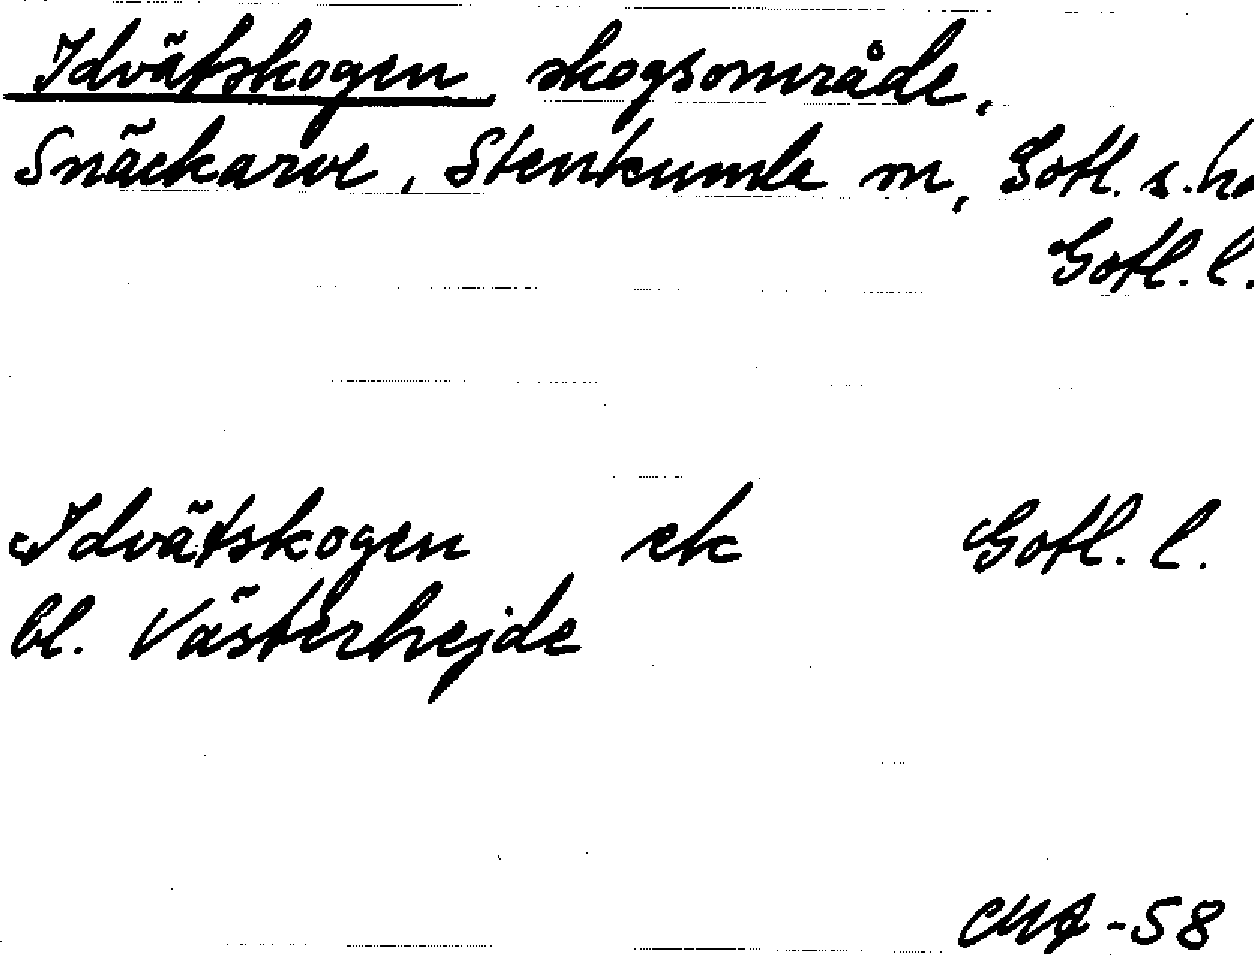 Idvätskogen skogsområde,
Snäckarve, Stenkumla m, Gotl. s. hd
Gotl. l.
Idvätskogen ek Gotl. l.
bl. Västerhejde
-58